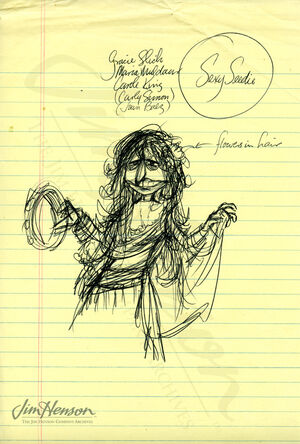 Slick
Maria Muldaur
Carole King
(Carly Simon)
(Joan Baez)
Sexy
flowers in hair
Jim Henson
THE JIM HENSON COMPANY ARCHIVES
ARCHIVES